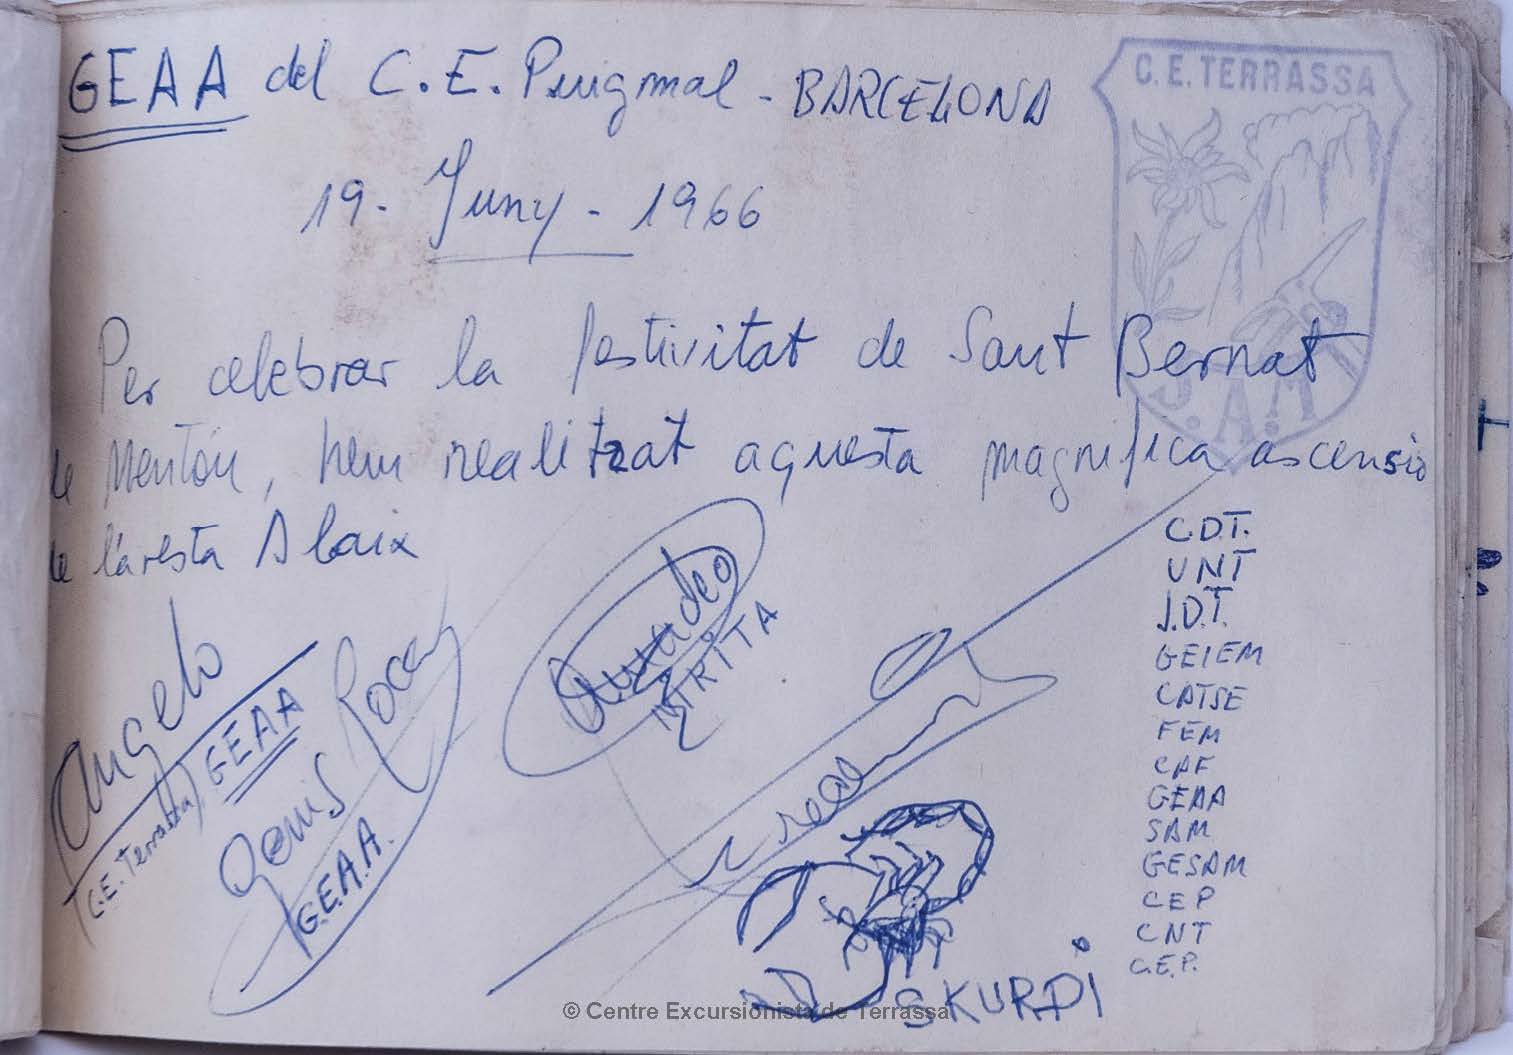 GEAA del C.E. Puigmal - BARCELONA
C.E. TERRASSA
19 - Juny - 1966
J.A.M
Per celebrar la festivitat de Sant Bernat
de Mentón, hem realitzat aquesta magnifica ascensió
de l'aresta Abaix
C.D.T.
UNT
J.D.T.
GEIEM
CATSE
FEM
CAF
GEAA
SAM
GESAM
CEP
CNT
C.E.P.
Angelo
(C.E. Terrassa) GEAA
Genis Roca
G.E.A.A.
Amadeo
SKURPI
© Centre Excursionista de Terrassa